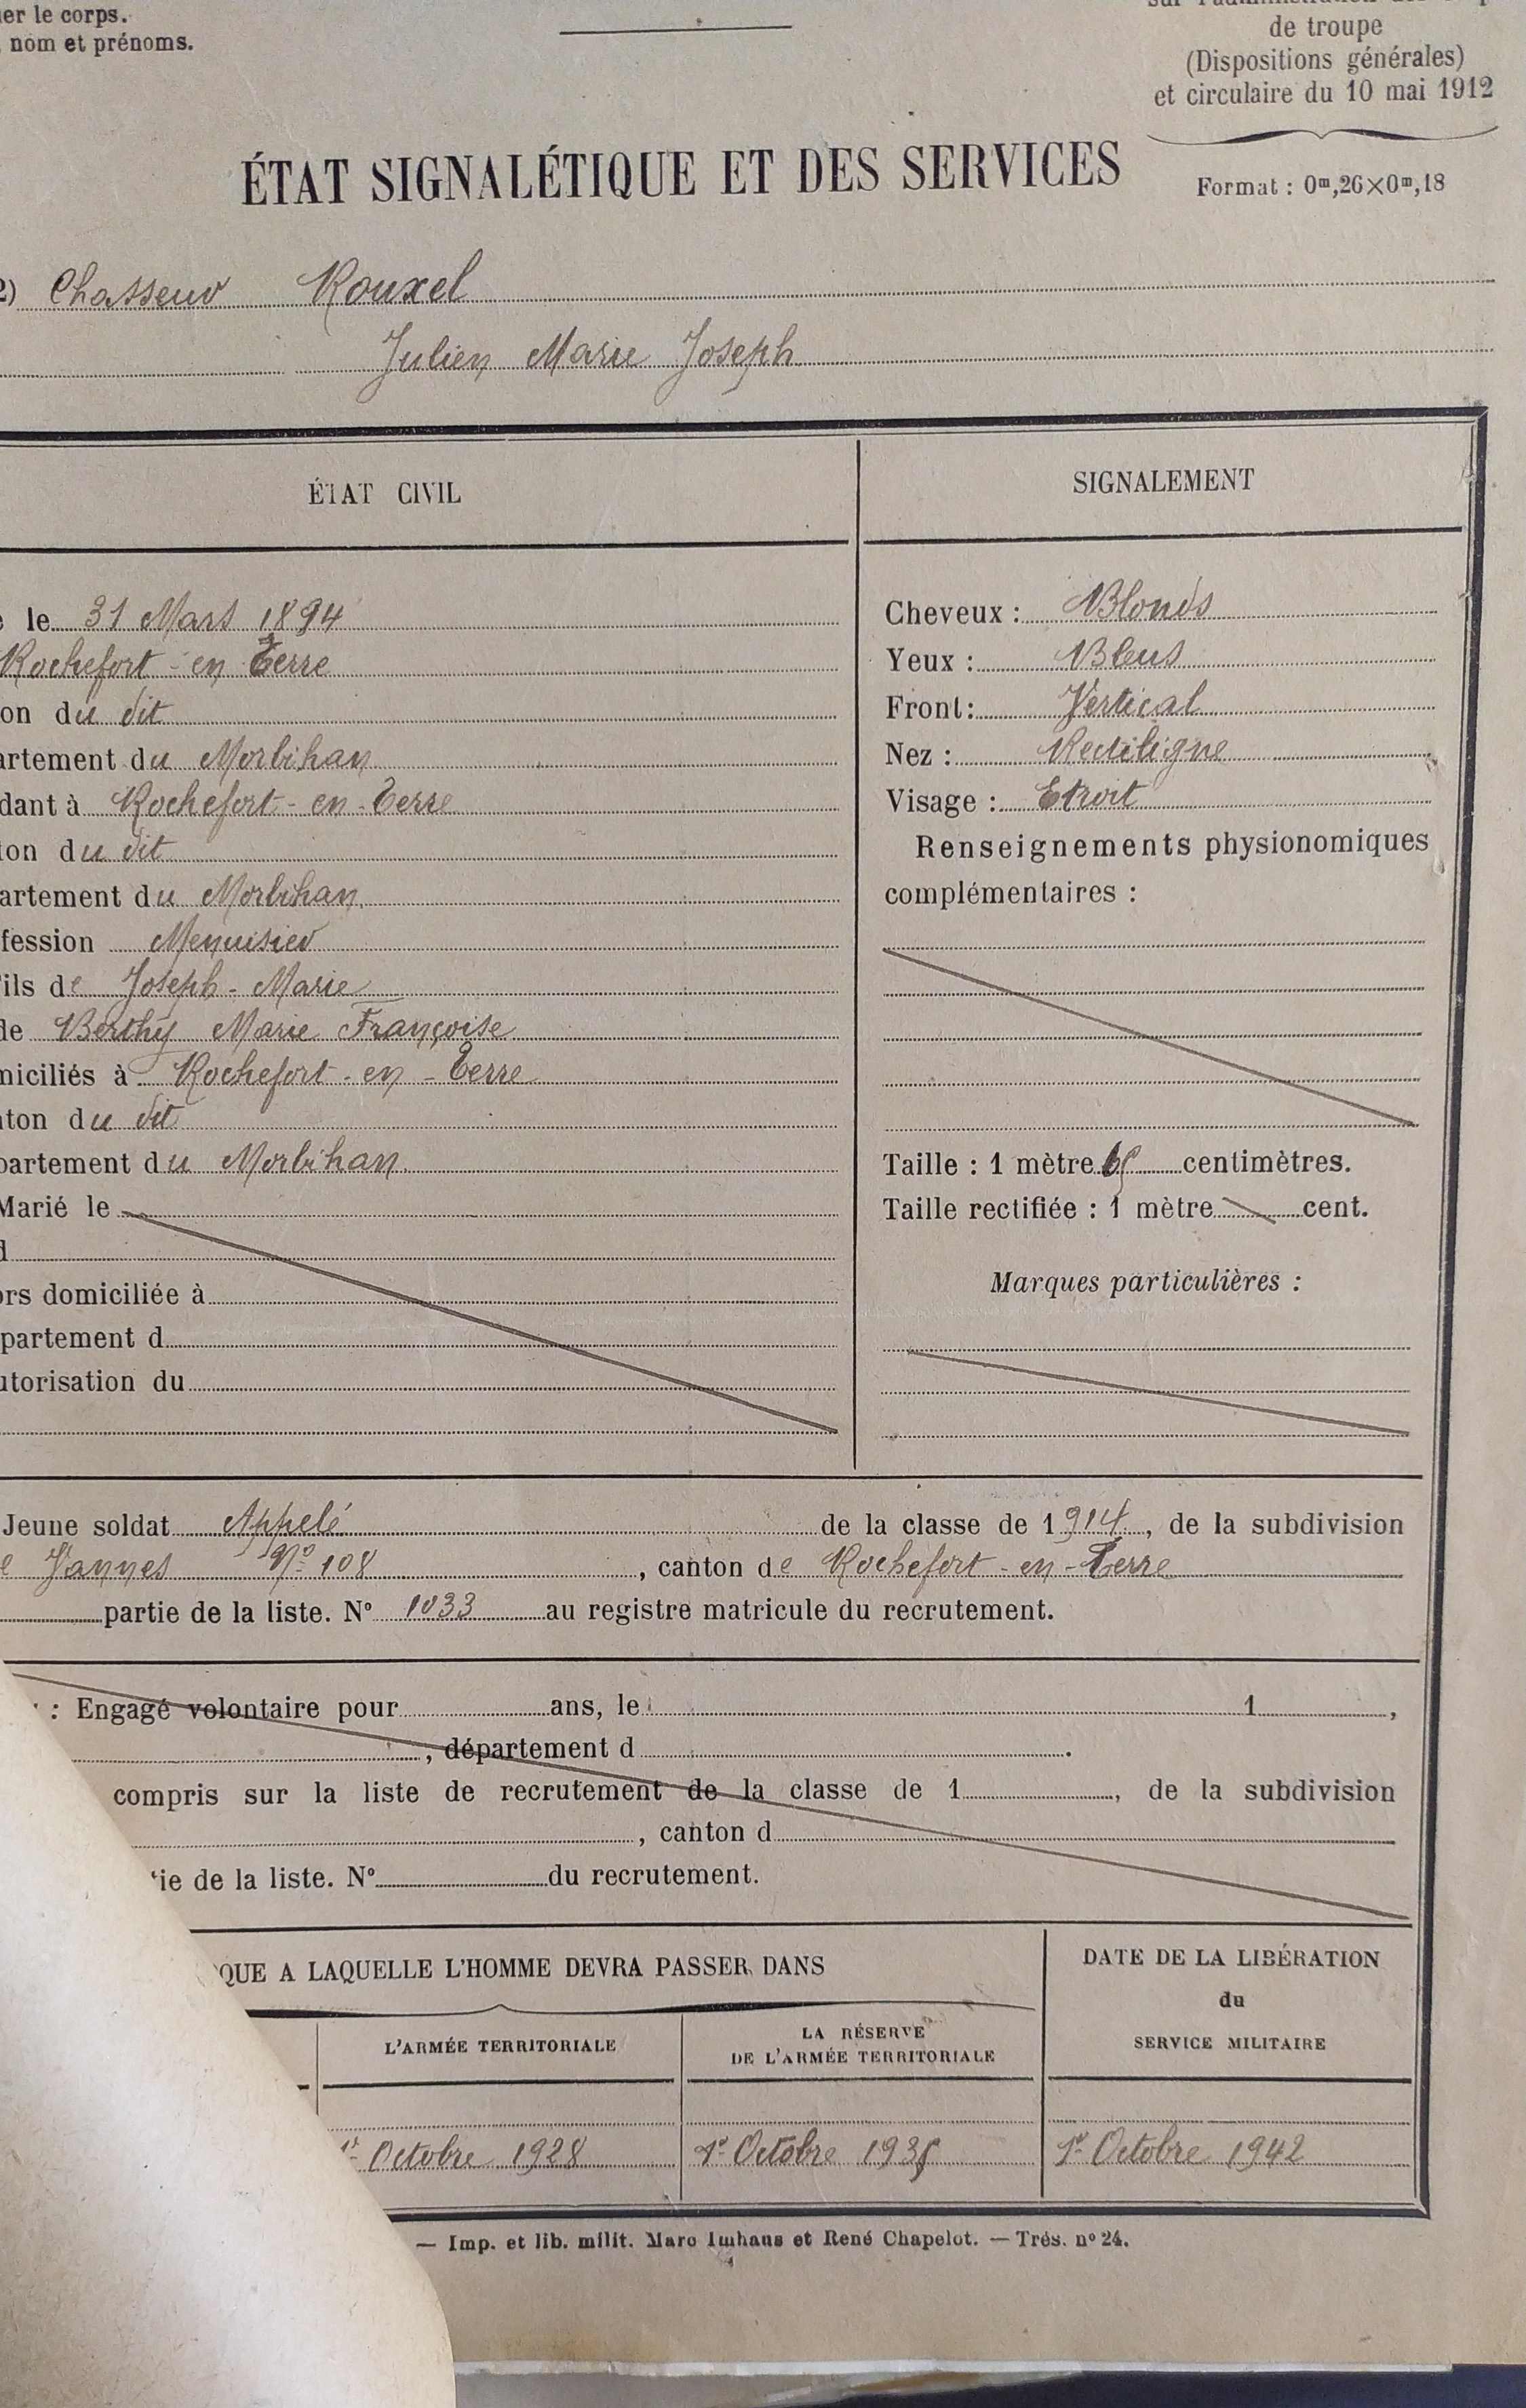 er le corps.
nom et prénoms.
de troupe
(Dispositions générales)
et circulaire du 10 mai 1912
ÉTAT SIGNALÉTIQUE ET DES SERVICES
Format : 0m,26×0m,18
2) Chasseur Rouxel
Julien Marie Joseph
ÉTAT CIVIL
le 31 Mars 1894
Rochefort-en-Terre
on du dit
artement du Morbihan
dant à Rochefort-en-Terre
ion du dit
artement du Morbihan
fession Menuisier
ils de Joseph-Marie
de Berthy Marie Françoise
miciliés à Rochefort-en-Terre
nton du dit
partement du Morbihan
Marié le
d
ors domiciliée à
partement d
utorisation du
SIGNALEMENT
Cheveux : Blonds
Yeux : Bleus
Front : Vertical
Nez : Rectiligne
Visage : Etroit
Renseignements physionomiques
complémentaires :
Taille : 1 mètre centimètres.
Taille rectifiée : 1 mètre cent.
Marques particulières :
Jeune soldat Appelé de la classe de 1914, de la subdivision
e Vannes No 108, canton de Rochefort-en-Terre
partie de la liste. N° 1033 au registre matricule du recrutement.
: Engagé volontaire pour ans, le 1 ,
, département d .
compris sur la liste de recrutement de la classe de 1 , de la subdivision
, canton d
ie de la liste. N° du recrutement.
QUE A LAQUELLE L'HOMME DEVRA PASSER DANS
L'ARMÉE TERRITORIALE
LA RÉSERVE
DE L'ARMÉE TERRITORIALE
DATE DE LA LIBÉRATION
du
SERVICE MILITAIRE
1er Octobre 1928
1er Octobre 1935
1er Octobre 1942
— Imp. et lib. milit. Marc Imhaus et René Chapelot. — Trés. n° 24.